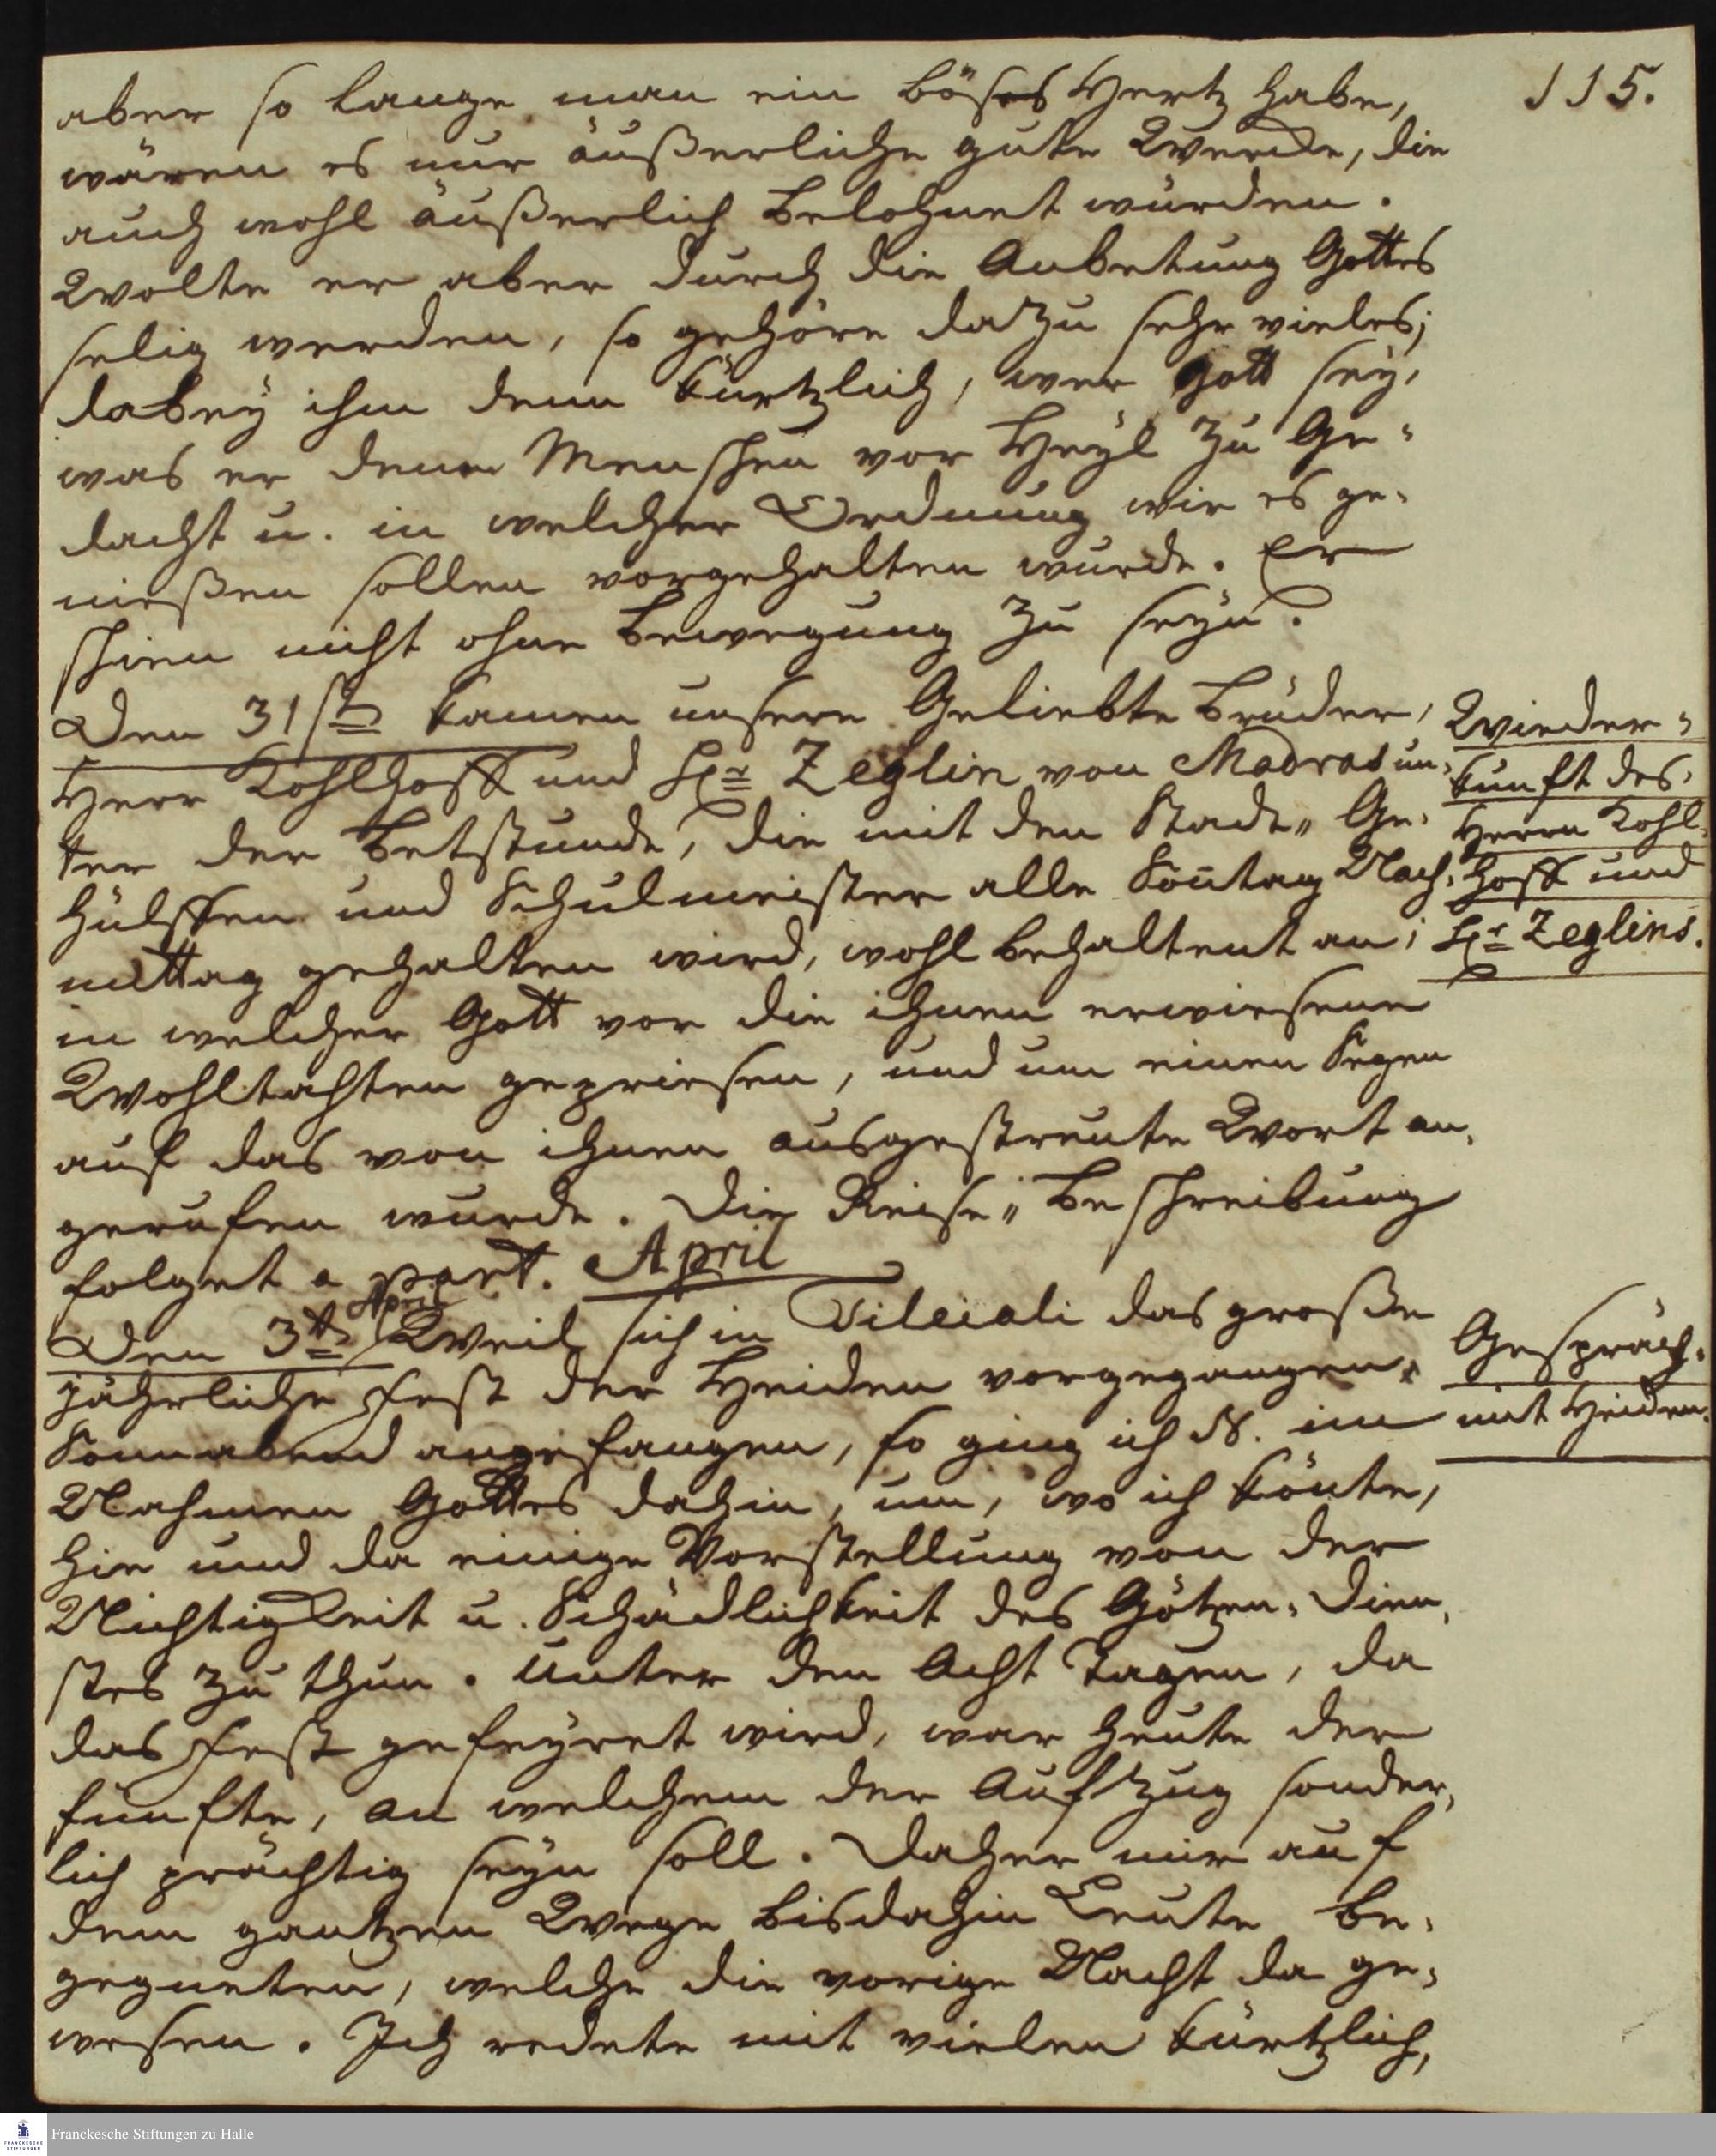 115.
aber so lange man ein böses Hertz habe,
wären es nur äußerliche gute Wercke, die
auch wohl äußerlich belohnet würden.
Wolte er aber durch die Anbetung Gottes
selig werden, so gehöre dazu sehr vieles;
dabeÿ ihm denn kürtzlich, wer Gott seÿ,
was er denen Menschen vor Heÿl zu Ge-
dacht u. in welcher Ordnung wir es ge-
nießen sollen vorgehalten wurde. Er
schien nicht ohne Bewegung zu seÿn.
Den 31sten kamen unsere Geliebte Brüder,
Herr Kohlhoff und Hr Zeglin von Madras un-
ter der Betstunde, die mit den Stadt-Ge-
hülffen und Schulmeister alle Soñtag Nach-
mittag gehalten wird, wohl behaltent an;
in welcher Gott vor die ihnen erwiesene
Wohltahten gepriesen, und um einen Segen
auf das von ihnen ausgestreute Wort an-
gerufen wurde. Die Reise-Beschreibung
folget a part. April
Wieder-
kunft des
Herrn Kohl-
hoff und
Hr Zeglins.
April
Den 3ten Weil sich in Tileiali das große
jährliche Fest der Heiden vorgegangen
Sonnabend angefangen, so ging ich N. im
Nahmen Gottes dahin, um, wo ich könte,
hie und da einige Vorstellung von der
Nichtigkeit u. Schädlichkeit des Götzen-Dien-
stes zu thun. Unter den Acht Tagen, da
das Fest gefeÿret wird, war heute der
fünfte, an welchem der Aufzug sonder-
lich prächtig seÿn soll. Daher mir auf
dem gantzen Wege bisdahin Leute be-
gegneten, welche die vorige Nacht da ge-
wesen. Ich redete mit vielen kürtzlich,
Gespräch
mit Heiden.
Franckesche Stiftungen zu Halle